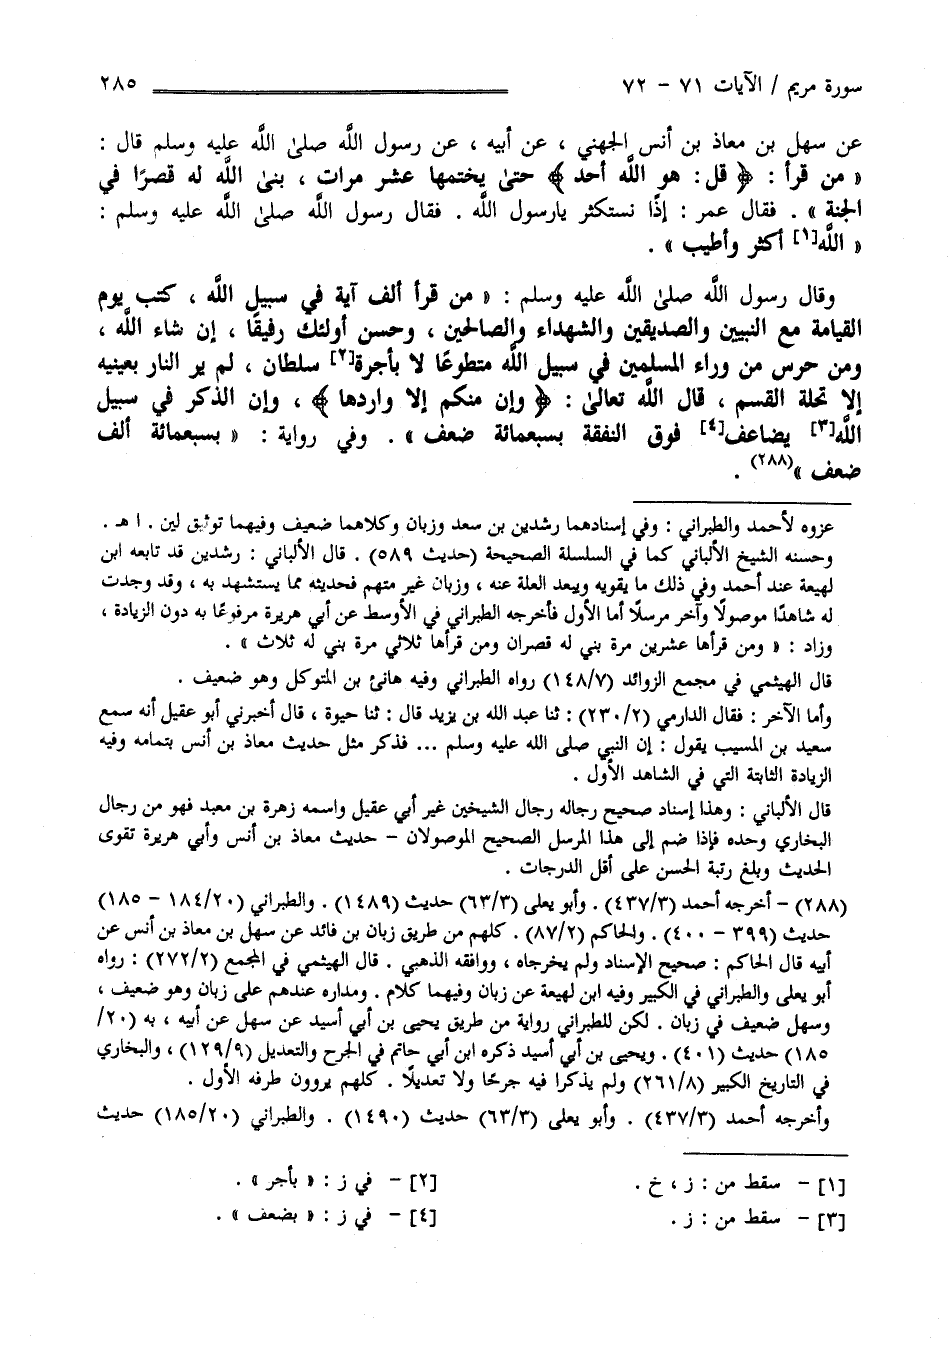 سورة مريم / الآيات ٧١ - ٧٢ ٢٨٥
عن سهل بن معاذ بن أنس الجهني ، عن أبيه ، عن رسول اللَّه صلىٰ اللَّه عليه وسلم قال :
« من قرأ : ﴿ قل : هو اللَّه أحد ﴾ حتىٰ يختمها عشر مرات ، بنىٰ اللَّه له قصرًا في
الجنة » . فقال عمر : إذًا نستكثر يارسول اللَّه . فقال رسول اللَّه صلىٰ اللَّه عليه وسلم :
« اللَّه[١] أكثر وأطيب » .
وقال رسول اللَّه صلىٰ اللَّه عليه وسلم : « من قرأ ألف آية في سبيل اللَّه ، كتب يوم
القيامة مع النبيين والصديقين والشهداء والصالحين ، وحسن أولئك رفيقًا ، إن شاء اللَّه ،
ومن حرس من وراء المسلمين في سبيل اللَّه متطوعًا لا بأجرة[٢] سلطان ، لم ير النار بعينيه
إلا تحلة القسم ، قال اللَّه تعالىٰ : ﴿ وإن منكم إلا واردها ﴾ ، وإن الذكر في سبيل
اللَّه[٣] يضاعف[٤] فوق النفقة بسبعمائة ضعف » . وفي رواية : « بسبعمائة ألف
ضعف »(٢٨٨) .
عزوه لأحمد والطبراني : وفي إسنادهما رشدين بن سعد وزبان وكلاهما ضعيف وفيهما توثيق لين . ا هـ .
وحسنه الشيخ الألباني كما في السلسلة الصحيحة (حديث ٥٨٩) . قال الألباني : رشدين قد تابعه ابن
لهيعة عند أحمد وفي ذلك ما يقويه ويبعد العلة عنه ، وزبان غير متهم فحديثه مما يستشهد به ، وقد وجدت
له شاهدًا موصولًا وآخر مرسلًا أما الأول فأخرجه الطبراني في الأوسط عن أبي هريرة مرفوعًا به دون الزيادة ،
وزاد : « ومن قرأها عشرين مرة بني له قصران ومن قرأها ثلاثي مرة بني له ثلاث » .
قال الهيثمي في مجمع الزوائد (١٤٨/٧) رواه الطبراني وفيه هانئ بن المتوكل وهو ضعيف .
وأما الآخر : فقال الدارمي (٢٣٠/٢) : ثنا عبد الله بن يزيد قال : ثنا حيوة ، قال أخبرني أبو عقيل أنه سمع
سعيد بن المسيب يقول : إن النبي صلى الله عليه وسلم ... فذكر مثل حديث معاذ بن أنس بتمامه وفيه
الزيادة الثابتة التي في الشاهد الأول .
قال الألباني : وهذا إسناد صحيح رجاله رجال الشيخين غير أبي عقيل واسمه زهرة بن معبد فهو من رجال
البخاري وحده فإذا ضم إلى هذا المرسل الصحيح الموصولان - حديث معاذ بن أنس وأبي هريرة تقوى
الحديث وبلغ رتبة الحسن على أقل الدرجات .
(٢٨٨) - أخرجه أحمد (٤٣٧/٣) . وأبو يعلى (٦٣/٣) حديث (١٤٨٩) . والطبراني (١٨٤/٢٠ - ١٨٥)
حديث (٣٩٩ - ٤٠٠) . والحاكم (٨٧/٢) . كلهم من طريق زبان بن فائد عن سهل بن معاذ بن أنس عن
أبيه قال الحاكم : صحيح الإسناد ولم يخرجاه ، ووافقه الذهبي . قال الهيثمي في المجمع (٢٧٢/٢) : رواه
أبو يعلى والطبراني في الكبير وفيه ابن لهيعة عن زبان وفيهما كلام . ومداره عندهم على زبان وهو ضعيف ،
وسهل ضعيف في زبان . لكن للطبراني رواية من طريق يحيى بن أبي أسيد عن سهل عن أبيه ، به (٢٠/
١٨٥) حديث (٤٠١) . ويحيى بن أبي أسيد ذكره ابن أبي حاتم في الجرح والتعديل (١٢٩/٩) ، والبخاري
في التاريخ الكبير (٢٦١/٨) ولم يذكرا فيه جرحًا ولا تعديلًا . كلهم يروون طرفه الأول .
وأخرجه أحمد (٤٣٧/٣) . وأبو يعلى (٦٣/٣) حديث (١٤٩٠) . والطبراني (١٨٥/٢٠) حديث
[١] - سقط من : ز ، خ . [٢] - في ز : « بأجر » .
[٣] - سقط من : ز . [٤] - في ز : « بضعف » .